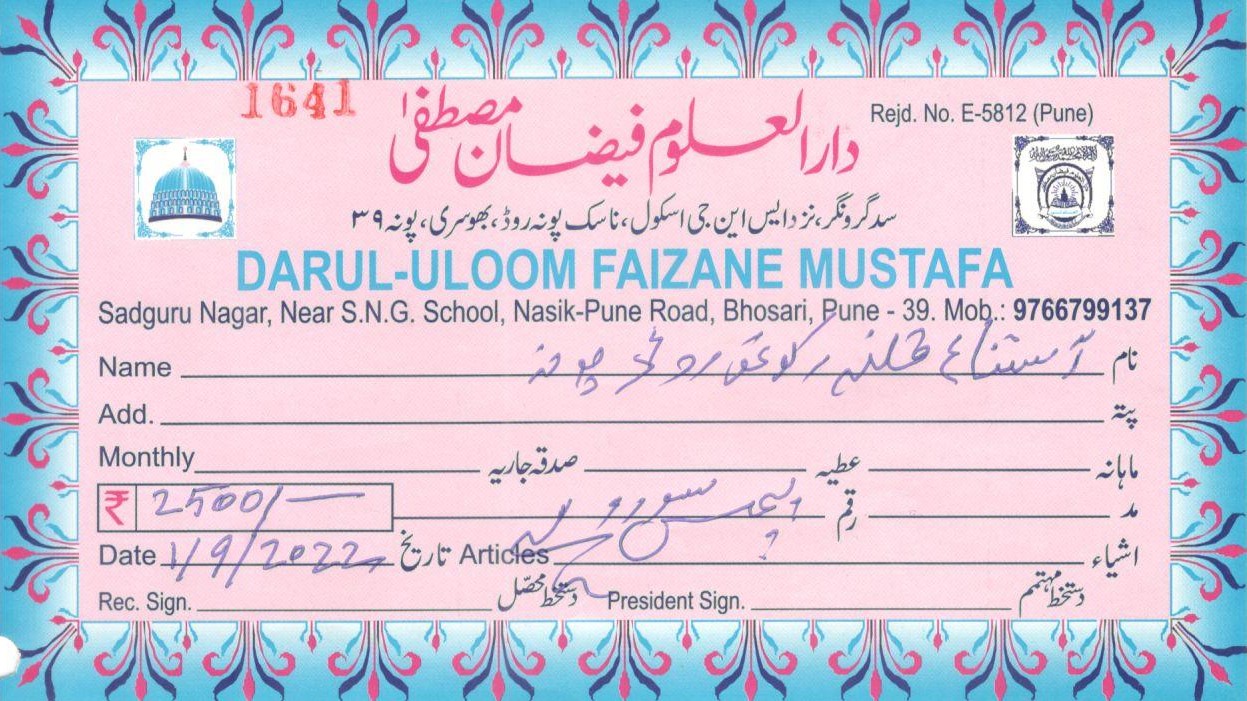 1641
دارالعلوم فیضان مصطفیٰ
Rejd. No. E-5812 (Pune)
سدگرونگر، نزد ایس این جی اسکول، ناسک پونہ روڈ، بھوسری، پونہ ۳۹
DARUL-ULOOM FAIZANE MUSTAFA
Sadguru Nagar, Near S.N.G. School, Nasik-Pune Road, Bhosari, Pune - 39. Mob.: 9766799137
Name روڈ پونہ نام
Add. پتہ
Monthly صدقہ جاریہ عطیہ ماہانہ
₹ 2500/- رقم مد
Date 1/9/2022 تاریخ Articles اشیاء
Rec. Sign. دستخط محصّل President Sign. دستخط مہتمم